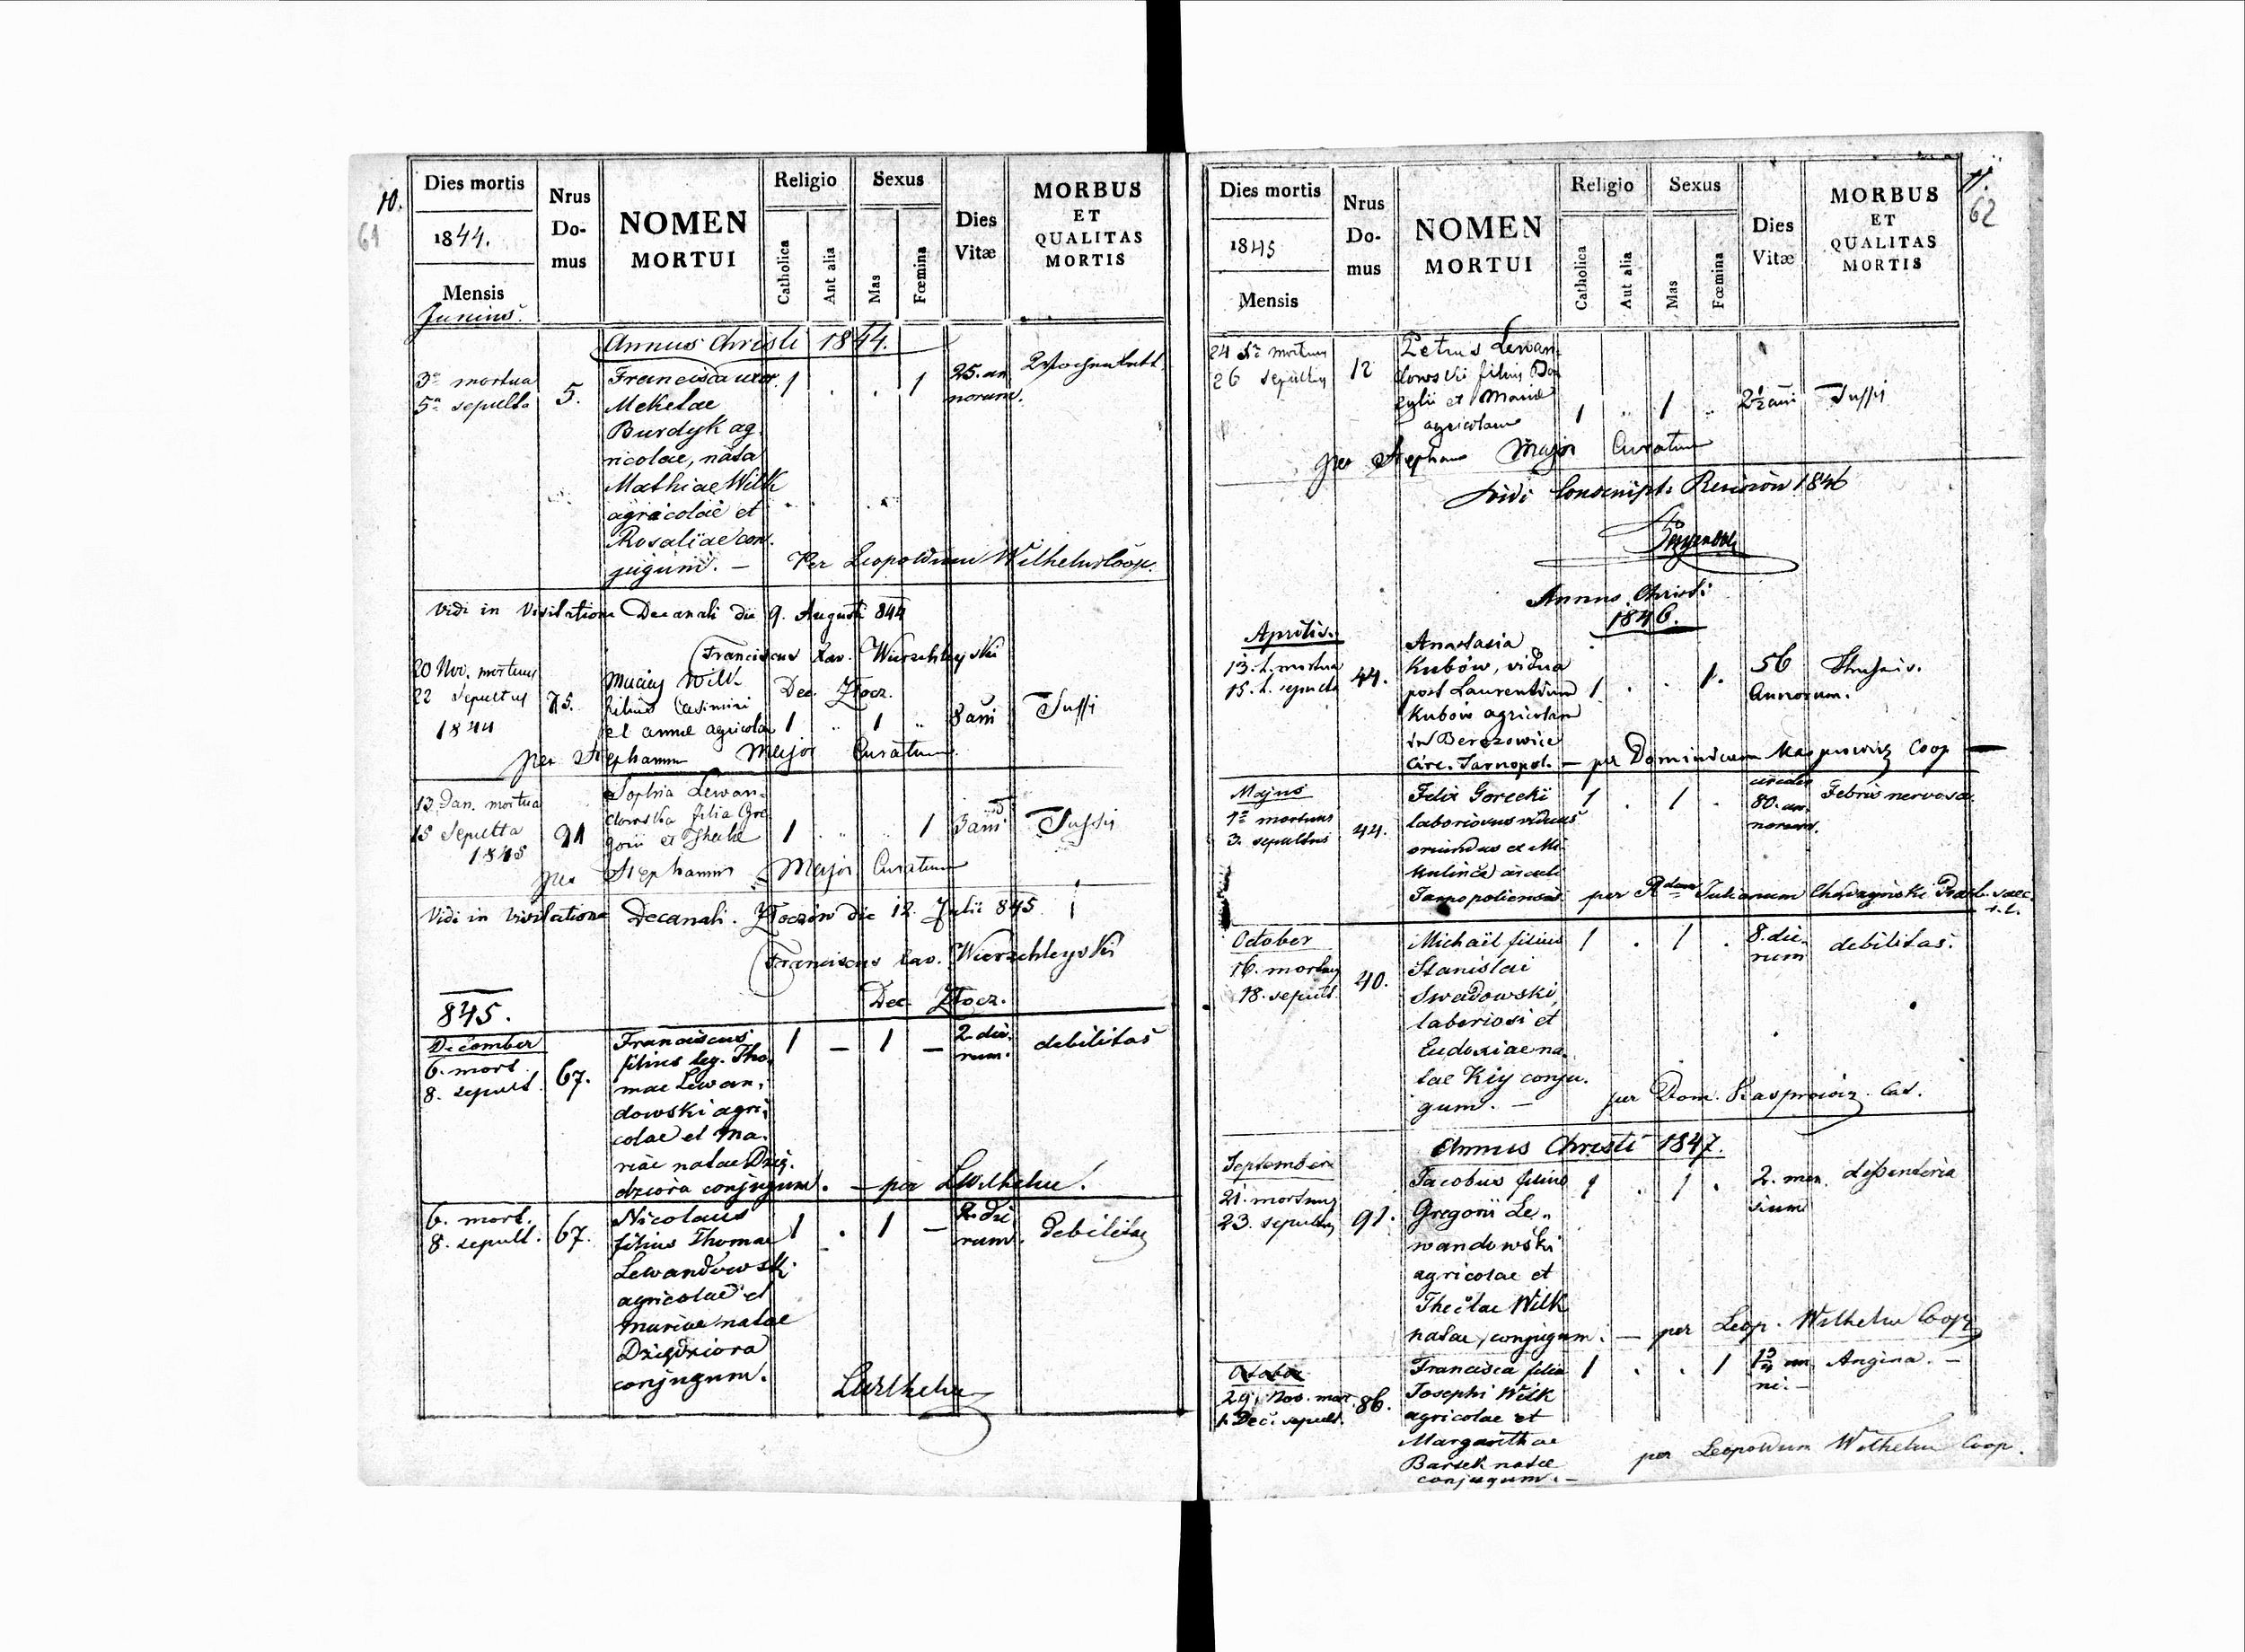 10.
61
Dies mortis
1844.
Mensis
Junius.
Nrus
Do-
mus
NOMEN
MORTUI
Religio
Catholica
Ant alia
Sexus
Mas
Fœmina
Dies
Vitæ
MORBUS
ET
QUALITAS
MORTIS
Annus Christi 1844.
3a mortua
5a sepulta
5.
Francisca uxor
Meketae
Burdyk ag
ricolae, nata
Mathiae Wilk
agricolae et
Rosaliae con
jugum. —
1 . . 1
25. an
norum.
Per Leopoldum Wilhelm Coop.
Vidi in Visitatione Decanali die 9. Augusti 844
Franciscus Xav. Wierzchleyski
Dec. Złocz.
20 Nov. mortuus
22 sepultus
1844
75.
Maciey Wilk
filius Casimiri
et annae agricolar
1 .. 1 ..
8 ani
Tussi
per Stephanum Major Curatum
13 Jan. mortua
15 sepulta
1845
91
Sophia Lewan-
dowska filia Gre
gorii et Thecla
1 .. .. 1
3 ani
Tussis
per Stephanum Major Curatum
Vidi in Visitatione Decanali. Złoczów die 12. Julii 845
Franciscus Xav. Wierzchleyski
Dec. Złocz.
845.
December
6. mort.
8. sepult.
67.
Franciscus
filius leg. Tho-
mae Lewan-
dowski agri-
colae et Ma-
riae natae Dzię-
dziora conjugum. — per LWilhelm.
1 — 1 —
2. die-
rum.
debilitas
6. mort.
8. sepult.
67.
Nicolaus
filius Thomae
Lewandowski
agricolae et
Mariae natae
Dzię​dziora
conjugum.
1 . 1 —
2. die
rum.
debilitas
LWilhelm
11.
62
Dies mortis
1845
Mensis
Nrus
Do-
mus
NOMEN
MORTUI
Religio
Catholica
Aut alia
Sexus
Mas
Fœmina
Dies
Vitæ
MORBUS
ET
QUALITAS
MORTIS
24 mortuus
26 sepultus
12
Petrus Lewan-
dowski filius Ba
zylii et Mariae
agricolarum
1 .. 1 ..
2½ ani
Tussis
per Stephanum Major Curatum
Vidi Conscript. Revision 1846
Annus Christi
1846.
Aprilis.
13. t. mortua
15. t. sepulta
44.
Anastasia
Kubów, vidua
post Laurentium
Kubów agricolam
in Berezowice
Circ. Tarnopol. — per Dominicum Kasprowicz Coop —
1 . . 1.
56
Annorum.
Majus
1a mortuus
3. sepultus
44.
Felix Gorecki
laboriosus viduus
oriundus ex Mi-
kulince circuli
Tarnopoliensis
1 . 1 .
circa
80. an
norum.
Febris nervosa
October
16. mortuus
18. sepult.
40.
Michaël filius
Stanislai
Swadowski,
laboriosi et
Eudoxiae na-
tae Kiy conju-
gum. —
1 . 1 .
8. die-
rum
debilitas.
per Dom. Kasprowicz Cat.
Annus Christi 1847.
September
21. mortuus
23. sepultus
91.
Jacobus filius
Gregorii Le-
wandowski
agricolae et
Theclae Wilk
natae, conjugum. — per Leop. Wilhelm Coop
1 . 1 .
2. men
sium
dissenteria
29. Nov. mor.
1. Dec. sepult.
86.
Francisca filia
Josephi Wilk
agricolae et
Margarithae
Bartek natae
conjugum. —
1 . . 1
Angina. —
per Leopoldum Wilhelm Coop.